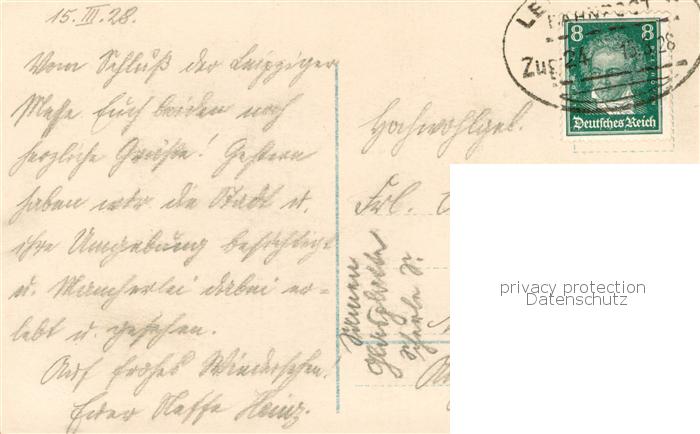 15. III. 28.
Vom Schluß der Leipziger
Messe Euch beiden noch
herzliche Grüße! Gestern
haben wir die Stadt u.
ihre Umgebung besichtigt
u. Mancherlei dabei er-
lebt u. gesehen.
Auf frohes Wiedersehn!
Euer Neffe Heinz.
BAHNPOST
Zug 24
15.3.28
8 8
Deutsches Reich
Hochwohlgeb.
Frl.
privacy protection
Datenschutz